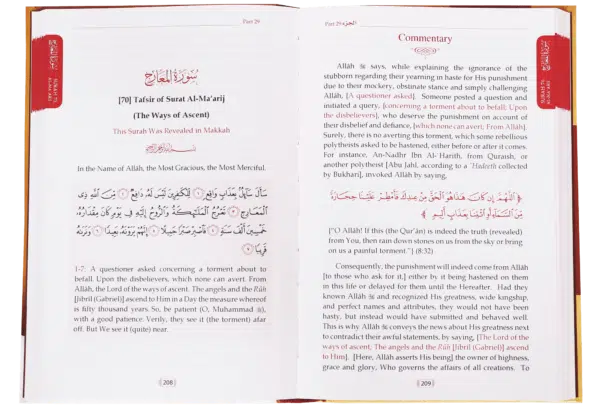 Part 29
سورة المعارج
[70] Tafsir of Surat Al-Ma'arij
(The Ways of Ascent)
This Surah Was Revealed in Makkah
In the Name of Allâh, the Most Gracious, the Most Merciful.
سَأَلَ سَآئِلٌۢ بِعَذَابٍ وَاقِعٍ ١ لِّلْكَٰفِرِينَ لَيْسَ لَهُۥ دَافِعٌ ٢ مِّنَ ٱللَّهِ ذِى
ٱلْمَعَارِجِ ٣ تَعْرُجُ ٱلْمَلَٰٓئِكَةُ وَٱلرُّوحُ إِلَيْهِ فِى يَوْمٍ كَانَ مِقْدَارُهُۥ
خَمْسِينَ أَلْفَ سَنَةٍ ٤ فَٱصْبِرْ صَبْرًا جَمِيلًا ٥ إِنَّهُمْ يَرَوْنَهُۥ بَعِيدًا ٦ وَنَرَىٰهُ
قَرِيبًا ٧
1-7: A questioner asked concerning a torment about to
befall. Upon the disbelievers, which none can avert. From
Allâh, the Lord of the ways of ascent. The angels and the Rûh
[Jibril (Gabriel)] ascend to Him in a Day the measure whereof
is fifty thousand years. So, be patient (O, Muhammad ﷺ),
with a good patience. Verily, they see it (the torment) afar
off. But We see it (quite) near.
208
Part 29 الجزء
Commentary
Allâh ﷻ says, while explaining the ignorance of the
stubborn regarding their yearning in haste for His punishment
due to their mockery, obstinate stance and simply challenging
Allâh, [A questioner asked]. Someone posted a question and
initiated a query, [concerning a torment about to befall; Upon
the disbelievers], who deserve the punishment on account of
their disbelief and defiance, [which none can avert; From Allâh].
Surely, there is no averting this torment, which some rebellious
polytheists asked to be hastened, either before or after it comes.
For instance, An-Nadhr Ibn Al-Harith, from Quraish, or
another polytheist [Abu Jahl, according to a 'Hadeeth collected
by Bukhari], invoked Allâh by saying,
﴿ ٱللَّهُمَّ إِن كَانَ هَٰذَا هُوَ ٱلْحَقَّ مِنْ عِندِكَ فَأَمْطِرْ عَلَيْنَا حِجَارَةً
مِّنَ ٱلسَّمَآءِ أَوِ ٱئْتِنَا بِعَذَابٍ أَلِيمٍ ﴾
("O Allâh! If this (the Qur'ân) is indeed the truth (revealed)
from You, then rain down stones on us from the sky or bring
on us a painful torment.") (8:32)
Consequently, the punishment will indeed come from Allâh
[to those who ask for it,] either by it being hastened on them
in this life or delayed for them until the Hereafter. Had they
known Allâh ﷻ and recognized His greatness, wide kingship,
and perfect names and attributes, they would not have been
hasty, but instead would have submitted and behaved well.
This is why Allâh ﷻ conveys the news about His greatness next
to contradict their awful statements, by saying, [The Lord of the
ways of ascent. The angels and the Rûh [Jibril (Gabriel)] ascend
to Him]. [Here, Allâh asserts His being] the owner of highness,
grace and glory, Who governs the affairs of all creations. To
209